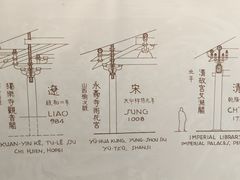 獨樂寺觀音閣
遼
統和二年
LIAO
984
KUAN-YIN KÊ, TU-LÊ SU
CHI HSIEN, HOPEI
山西榆次縣
永壽寺雨花宮
宋
大中祥符元年
SUNG
1008
YÜ HUA KUNG, YUNG-SHOU SU
YÜ-TZ'U, SHANSI
北平
清故宮文淵閣
清
CH'
17
IMPERIAL LIBRARY
IMPERIAL PALACES, PE